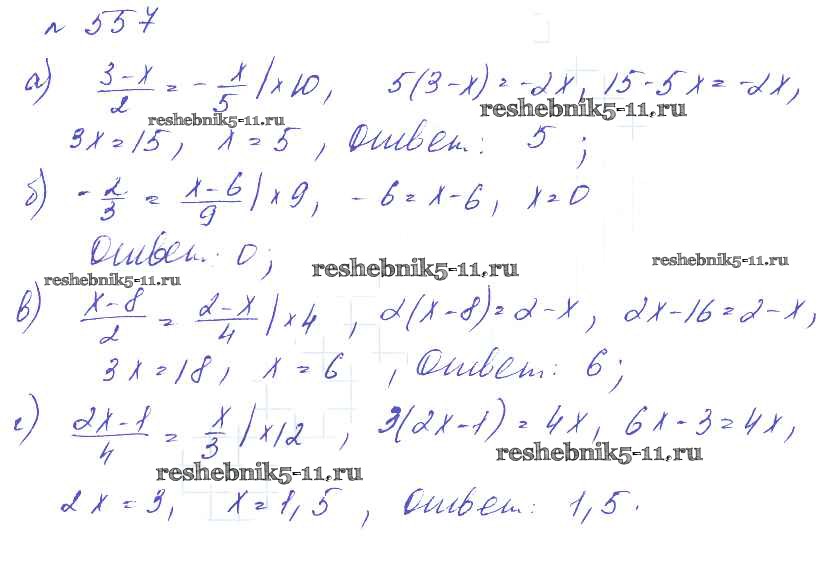 № 557
а) (3-x)/2 = - x/5 | ×10, 5(3-x) = -2x, 15-5x = -2x,
reshebnik5-11.ru reshebnik5-11.ru
3x = 15, x = 5, Ответ: 5;
б) - 2/3 = (x-6)/9 | ×9, -6 = x-6, x = 0
Ответ: 0;
reshebnik5-11.ru reshebnik5-11.ru reshebnik5-11.ru
в) (x-8)/2 = (2-x)/4 | ×4, 2(x-8) = 2-x, 2x-16 = 2-x,
3x = 18, x = 6, Ответ: 6;
г) (2x-1)/4 = x/3 | ×12, 3(2x-1) = 4x, 6x-3 = 4x,
reshebnik5-11.ru reshebnik5-11.ru
2x = 3, x = 1,5, Ответ: 1,5.